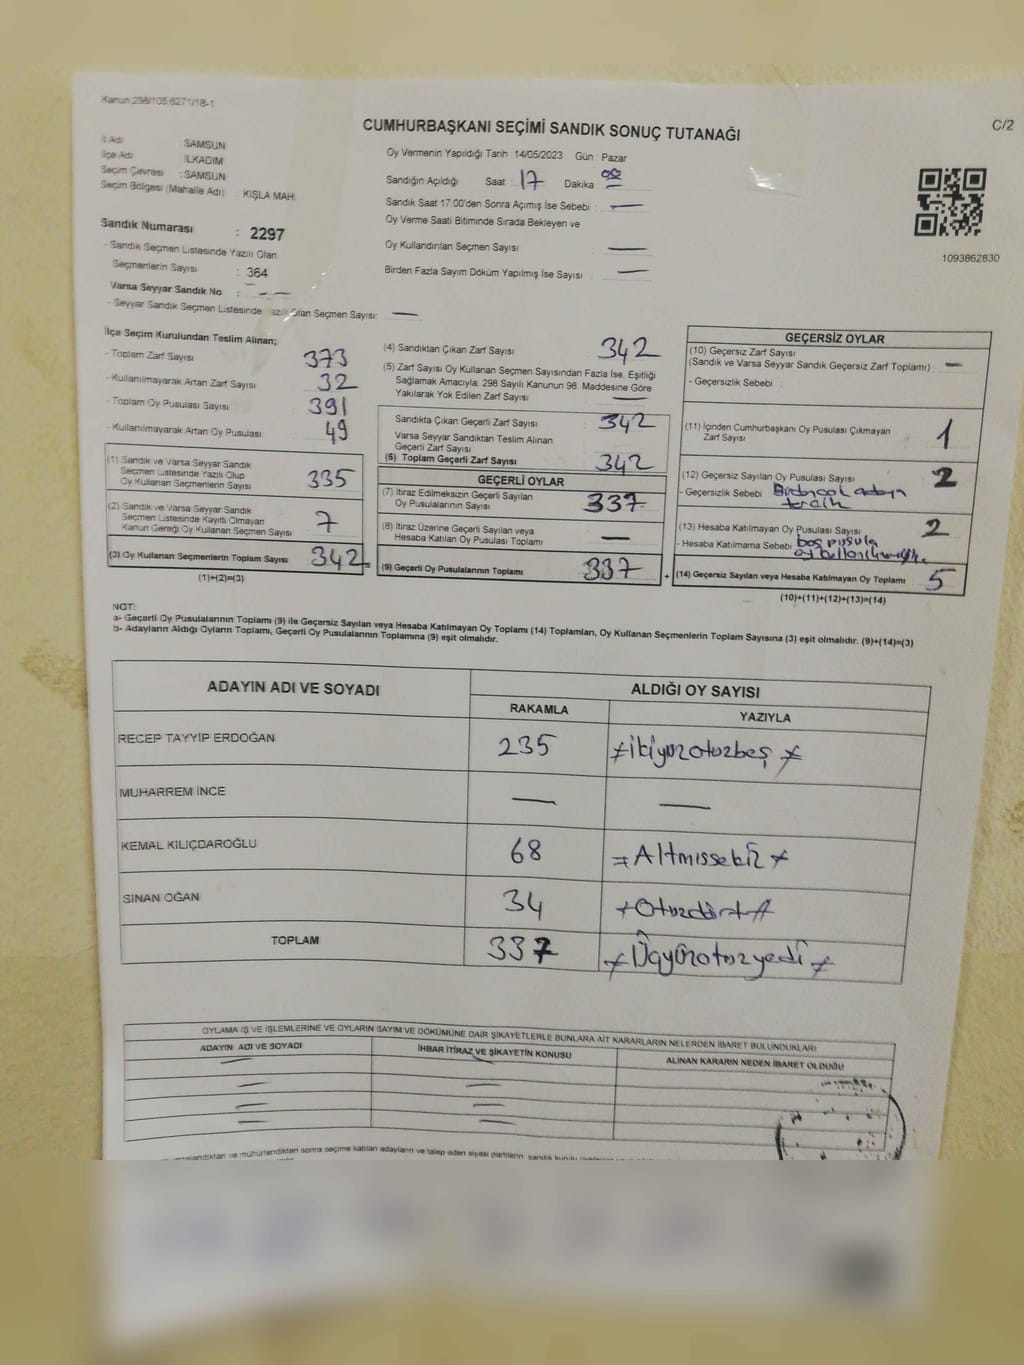 Kanun:298/105;6271/18-1
C/2
CUMHURBAŞKANI SEÇİMİ SANDIK SONUÇ TUTANAĞI
İl Adı : SAMSUN
İlçe Adı : İLKADIM
Seçim Çevresi : SAMSUN
Seçim Bölgesi (Mahalle Adı) : KIŞLA MAH.
Sandık Numarası : 2297
- Sandık Seçmen Listesinde Yazılı Olan
Seçmenlerin Sayısı : 364
Varsa Seyyar Sandık No : —
- Seyyar Sandık Seçmen Listesinde Yazılı Olan Seçmen Sayısı: —
Oy Vermenin Yapıldığı Tarih : 14/05/2023 Gün : Pazar
Sandığın Açıldığı Saat : 17 Dakika : 00
Sandık Saat 17.00'den Sonra Açımış İse Sebebi : —
Oy Verme Saati Bitiminde Sırada Bekleyen ve
Oy Kullandırılan Seçmen Sayısı —
Birden Fazla Sayım Döküm Yapılmış İse Sayısı : —
1093862830
İlçe Seçim Kurulundan Teslim Alınan;
- Toplam Zarf Sayısı 373
- Kullanılmayarak Artan Zarf Sayısı 32
- Toplam Oy Pusulası Sayısı 391
- Kullanılmayarak Artan Oy Pusulası 49
(1) Sandık ve Varsa Seyyar Sandık
Seçmen Listesinde Yazılı Olup
Oy Kullanan Seçmenlerin Sayısı 335
(2) Sandık ve Varsa Seyyar Sandık
Seçmen Listesinde Kayıtlı Olmayan
Kanun Gereği Oy Kullanan Seçmen Sayısı 7
(3) Oy Kullanan Seçmenlerin Toplam Sayısı 342
(1)+(2)=(3)
(4) Sandıktan Çıkan Zarf Sayısı 342
(5) Zarf Sayısı Oy Kullanan Seçmen Sayısından Fazla İse, Eşitliği
Sağlamak Amacıyla; 298 Sayılı Kanunun 98. Maddesine Göre
Yakılarak Yok Edilen Zarf Sayısı —
Sandıkta Çıkan Geçerli Zarf Sayısı 342
Varsa Seyyar Sandıktan Teslim Alınan
Geçerli Zarf Sayısı
(6) Toplam Geçerli Zarf Sayısı 342
GEÇERLİ OYLAR
(7) İtiraz Edilmeksizin Geçerli Sayılan
Oy Pusulalarının Sayısı 337
(8) İtiraz Üzerine Geçerli Sayılan veya
Hesaba Katılan Oy Pusulası Toplamı —
(9) Geçerli Oy Pusulalarının Toplamı 337
+
GEÇERSİZ OYLAR
(10) Geçersiz Zarf Sayısı
(Sandık ve Varsa Seyyar Sandık Geçersiz Zarf Toplamı) : —
- Geçersizlik Sebebi :
(11) İçinden Cumhurbaşkanı Oy Pusulası Çıkmayan
Zarf Sayısı 1
(12) Geçersiz Sayılan Oy Pusulası Sayısı 2
- Geçersizlik Sebebi Birden çok adaya
tercih
(13) Hesaba Katılmayan Oy Pusulası Sayısı 2
- Hesaba Katılmama Sebebi : boş pusula
(14) Geçersiz Sayılan veya Hesaba Katılmayan Oy Toplamı 5
(10)+(11)+(12)+(13)=(14)
NOT:
a- Geçerli Oy Pusulalarının Toplamı (9) ile Geçersiz Sayılan veya Hesaba Katılmayan Oy Toplamı (14) Toplamları, Oy Kullanan Seçmenlerin Toplam Sayısına (3) eşit olmalıdır. (9)+(14)=(3)
b- Adayların Aldığı Oyların Toplamı, Geçerli Oy Pusulalarının Toplamına (9) eşit olmalıdır.
ADAYIN ADI VE SOYADI ALDIĞI OY SAYISI
RAKAMLA YAZIYLA
RECEP TAYYİP ERDOĞAN 235 ikiyüzotuzbeş
MUHARREM İNCE — —
KEMAL KILIÇDAROĞLU 68 Altmışsekiz
SİNAN OĞAN 34 Otuzdört
TOPLAM 337 Üçyüzotuzyedi
OYLAMA İŞ VE İŞLEMLERİNE VE OYLARIN SAYIM VE DÖKÜMÜNE DAİR ŞİKAYETLERLE BUNLARA AİT KARARLARIN NELERDEN İBARET BULUNDUKLARI
ADAYIN ADI VE SOYADI İHBAR İTİRAZ VE ŞİKAYETİN KONUSU ALINAN KARARIN NEDEN İBARET OLDUĞU
ve mühürlendikten sonra seçime katılan adayların ve talep eden siyasi partilerin sandık kurulu